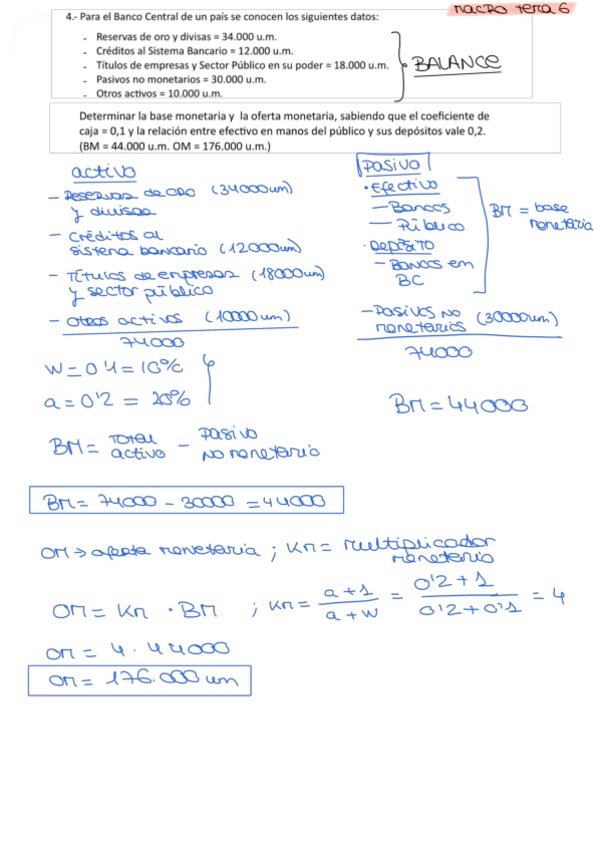 macro tema 6
4.- Para el Banco Central de un país se conocen los siguientes datos:
- Reservas de oro y divisas = 34.000 u.m.
- Créditos al Sistema Bancario = 12.000 u.m.
- Títulos de empresas y Sector Público en su poder = 18.000 u.m.
- Pasivos no monetarios = 30.000 u.m.
- Otros activos = 10.000 u.m.
BALANCE
Determinar la base monetaria y la oferta monetaria, sabiendo que el coeficiente de
caja = 0,1 y la relación entre efectivo en manos del público y sus depósitos vale 0,2.
(BM = 44.000 u.m. OM = 176.000 u.m.)
activo
- Reservas de oro (34000um)
y divisas
- Créditos al
sistema bancario (12000um)
- Títulos de empresas (18000um)
y sector público
- otros activos (10000um)
74000
Pasivo
· Efectivo
- Bancos
- Público
· Depósito
- Bancos en
BC
BM = base
monetaria
- Pasivos no
monetarios (30000um)
74000
w = 0'1 = 10%
a = 0'2 = 20%
BM = 44000
BM = Total activo - Pasivo no monetario
BM = 74000 - 30000 = 44000
OM → oferta monetaria ; Km = multiplicador
monetario
OM = Km · BM ; Km = a+1 / a+w = 0'2+1 / 0'2+0'1 = 4
OM = 4 · 44000
OM = 176.000 um